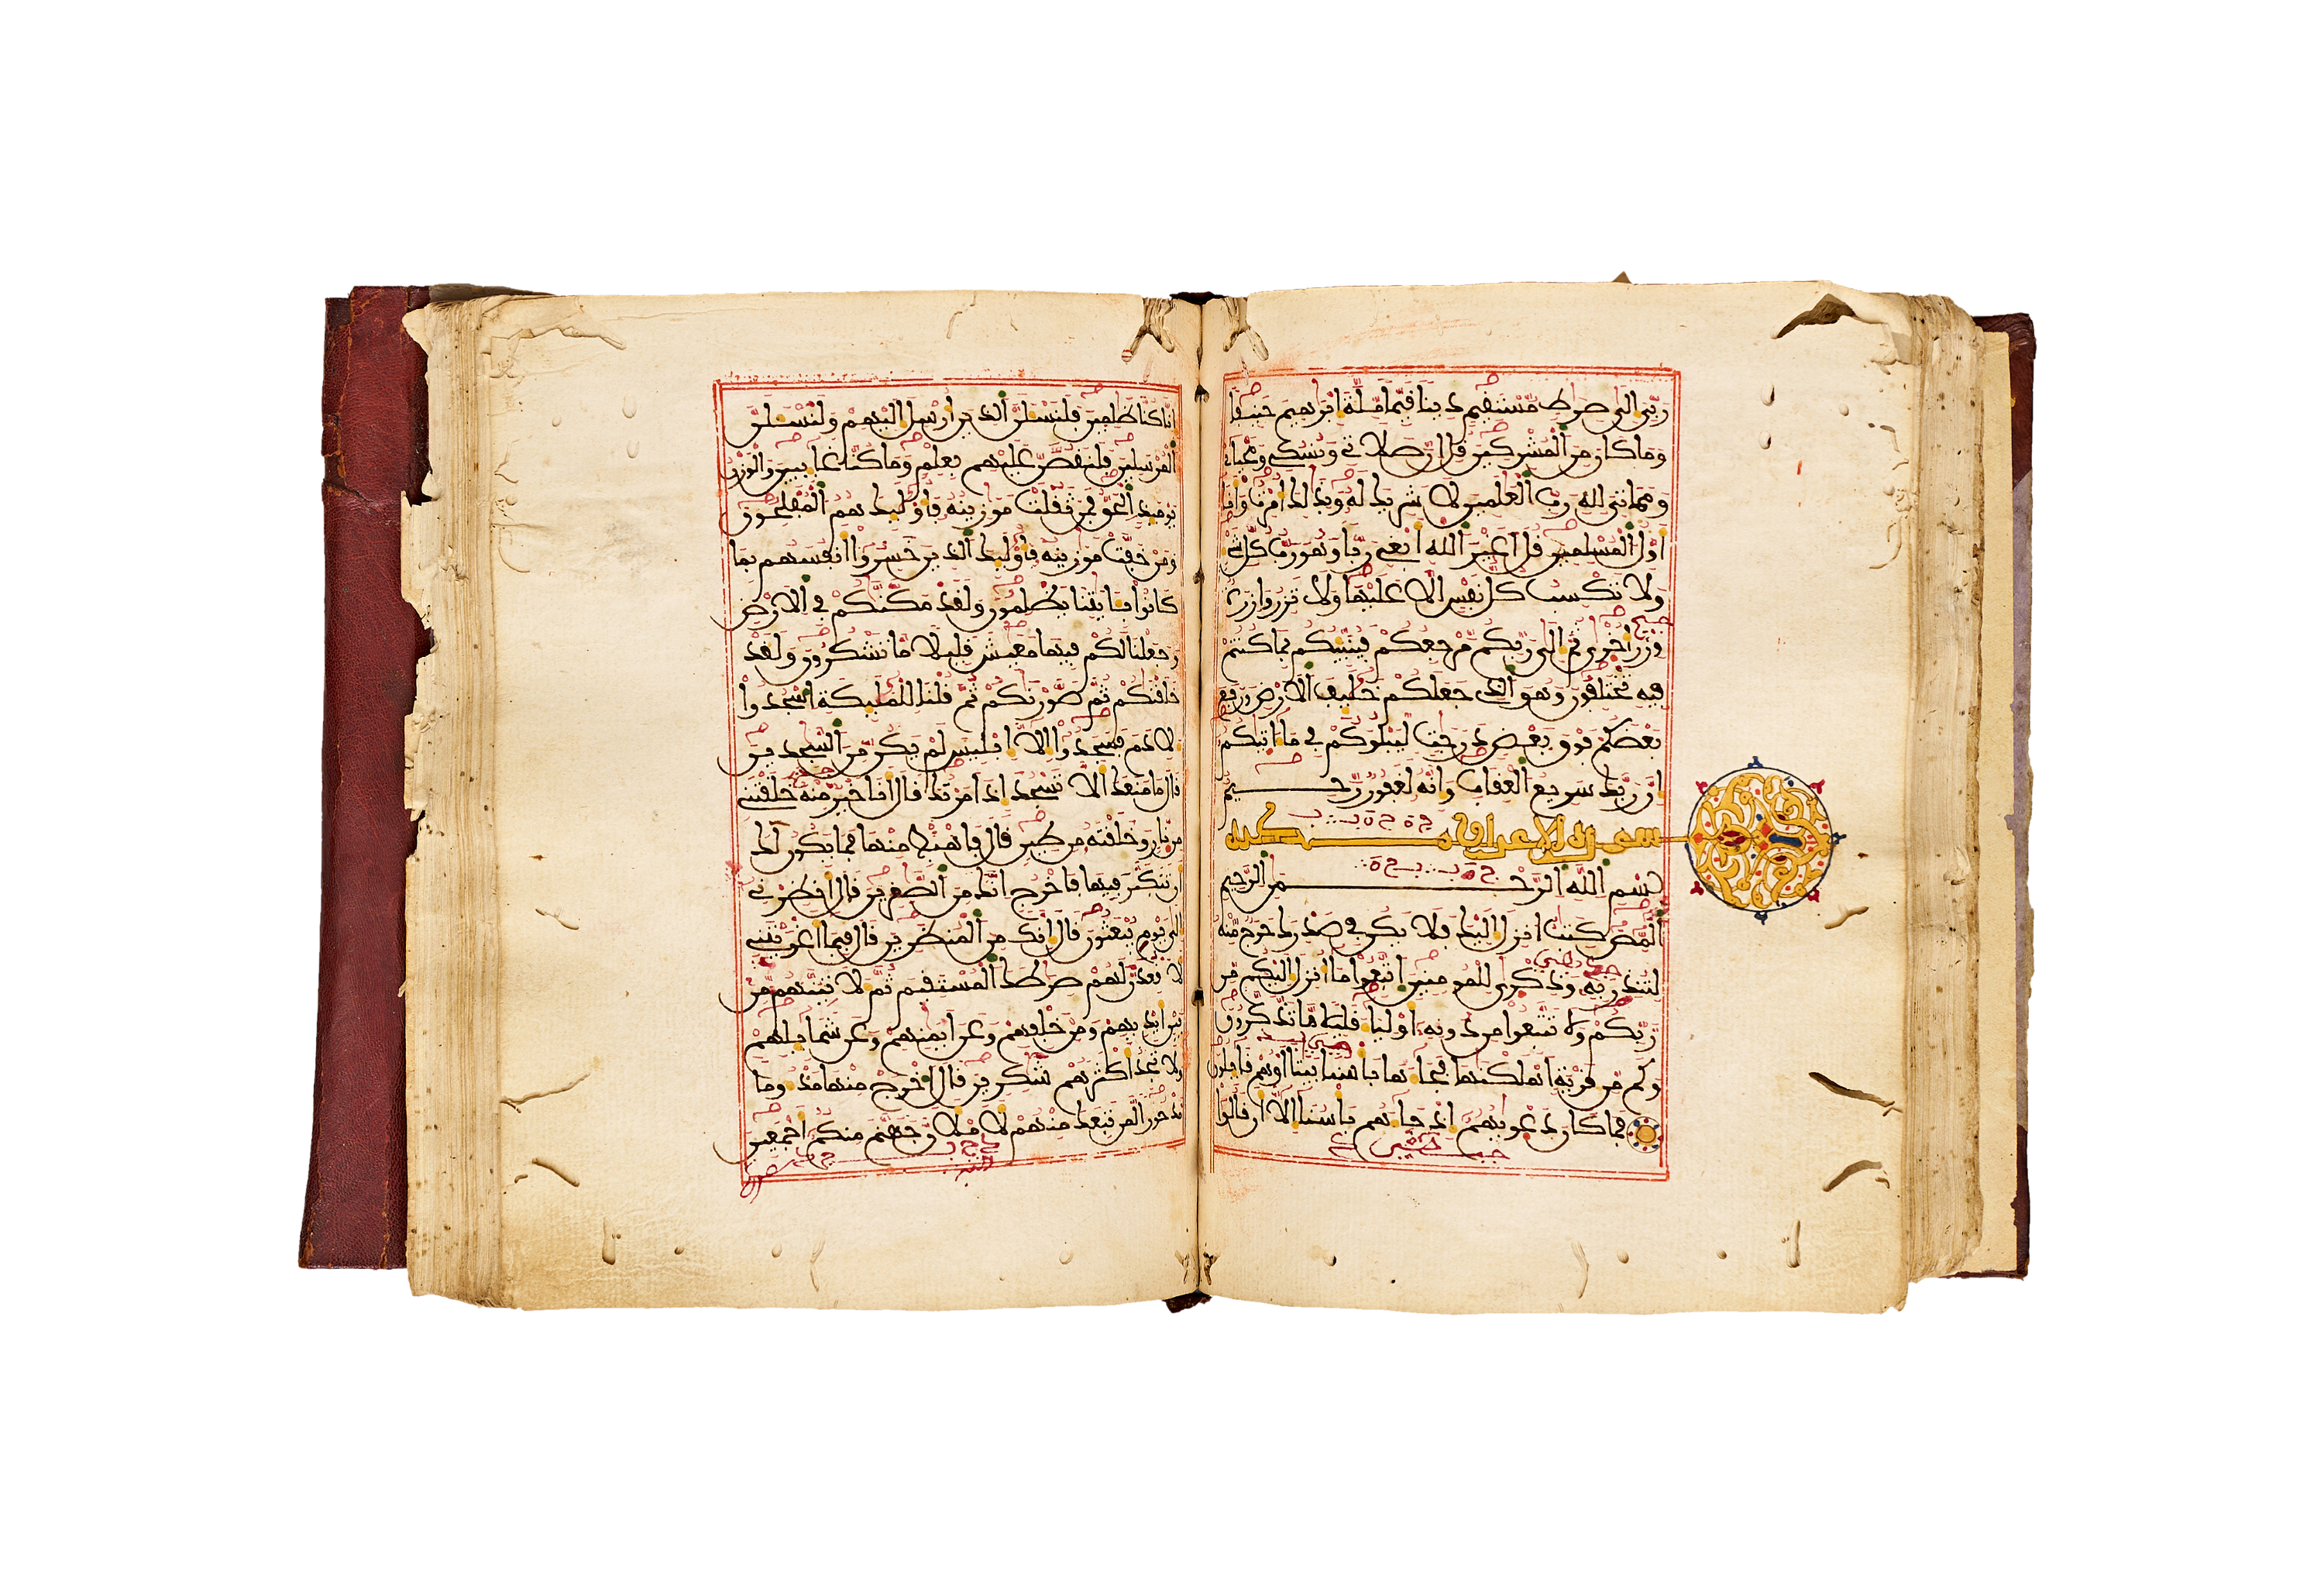 ربي إلى صرط مستقيم دينا قيما ملة إبرهيم حنيفا
وما كان من المشركين قل إن صلاتي ونسكي ومحياي
ومماتي لله رب العلمين لا شريك له وبذلك أمرت وأنا
أول المسلمين قل أغير الله أبغي ربا وهو رب كل شيء
ولا تكسب كل نفس إلا عليها ولا تزر وازرة
وزر أخرى ثم إلى ربكم مرجعكم فينبئكم بما كنتم
فيه تختلفون وهو الذي جعلكم خليف الأرض ورفع
بعضكم فوق بعض درجت ليبلوكم في ما ءاتيكم
إن ربك سريع العقاب وإنه لغفور رحيم
سورة الأعراف مكية
بسم الله الرحمن الرحيم
المص كتب أنزل إليك فلا يكن في صدرك حرج منه
لتنذر به وذكرى للمومنين اتبعوا ما أنزل إليكم من
ربكم ولا تتبعوا من دونه أوليا قليلا ما تذكرون
وكم من قرية أهلكنها فجاها بأسنا بيتا أو هم قايلون
فما كان دعويهم إذ جاهم بأسنا إلا أن قالوا
إنا كنا ظلمين فلنسلن الذين أرسل إليهم ولنسلن
المرسلين فلنقصن عليهم بعلم وما كنا غايبين والوزن
يوميذ الحق فمن ثقلت موزينه فأوليك هم المفلحون
ومن خفت موزينه فأوليك الذين خسروا أنفسهم بما
كانوا بايتنا يظلمون ولقد مكنكم في الأرض
وجعلنا لكم فيها معيش قليلا ما تشكرون ولقد
خلقنكم ثم صورنكم ثم قلنا للمليكة اسجدوا
لادم فسجدوا إلا إبليس لم يكن من السجدين
قال ما منعك ألا تسجد إذ أمرتك قال أنا خير منه خلقتني
من نار وخلقته من طين قال فاهبط منها فما يكون لك
أن تتكبر فيها فاخرج إنك من الصغرين قال أنظرني
إلى يوم يبعثون قال إنك من المنظرين قال فبما أغويتني
لأقعدن لهم صرطك المستقيم ثم لأتينهم من
بين أيديهم ومن خلفهم وعن أيمنهم وعن شمايلهم
ولا تجد أكثرهم شكرين قال اخرج منها مذوما
مدحورا لمن تبعك منهم لأملأن جهنم منكم أجمعين